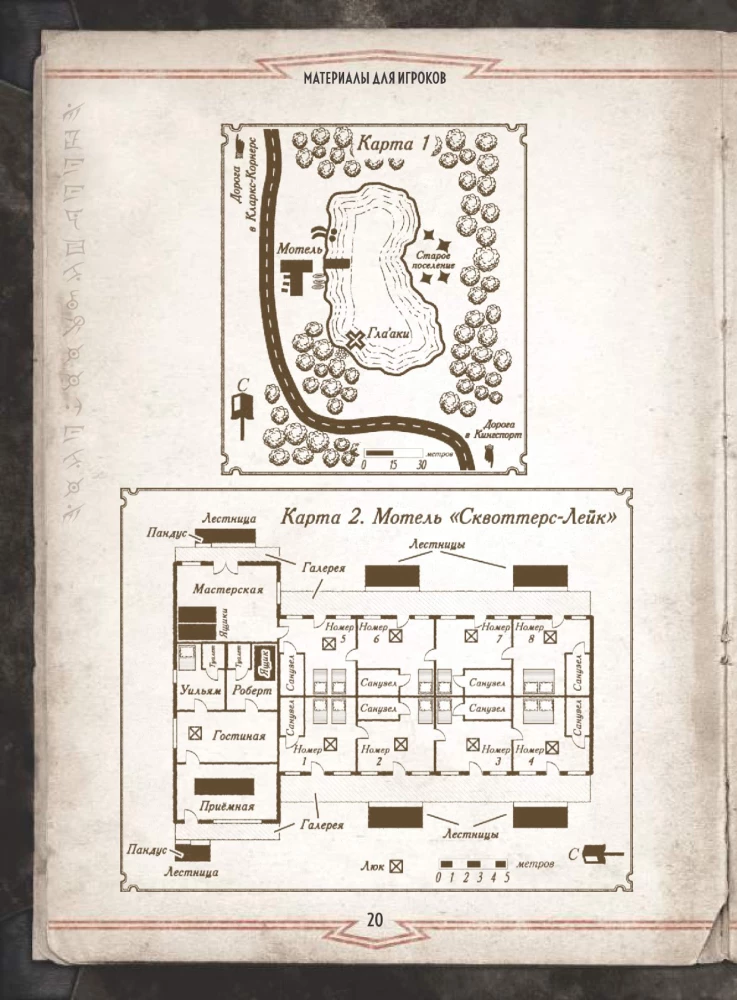 МАТЕРИАЛЫ ДЛЯ ИГРОКОВ
Карта 1
Дорога
в Кларкс-Корнерс
Мотель
Старое
поселение
Гла'аки
С
Дорога
в Кингспорт
метров
0 15 30
Карта 2. Мотель «Сквоттерс-Лейк»
Лестница
Пандус
Лестницы
Галерея
Мастерская
Ящики
Номер
5
Номер
6
Номер
7
Номер
8
Туалет
Туалет
Ящик
Санузел
Санузел
Санузел
Санузел
Уильям
Роберт
Санузел
Санузел
Санузел
Санузел
Гостиная
Номер
1
Номер
2
Номер
3
Номер
4
Приёмная
Галерея
Лестницы
Пандус
Лестница
Люк
метров
0 1 2 3 4 5
С
20